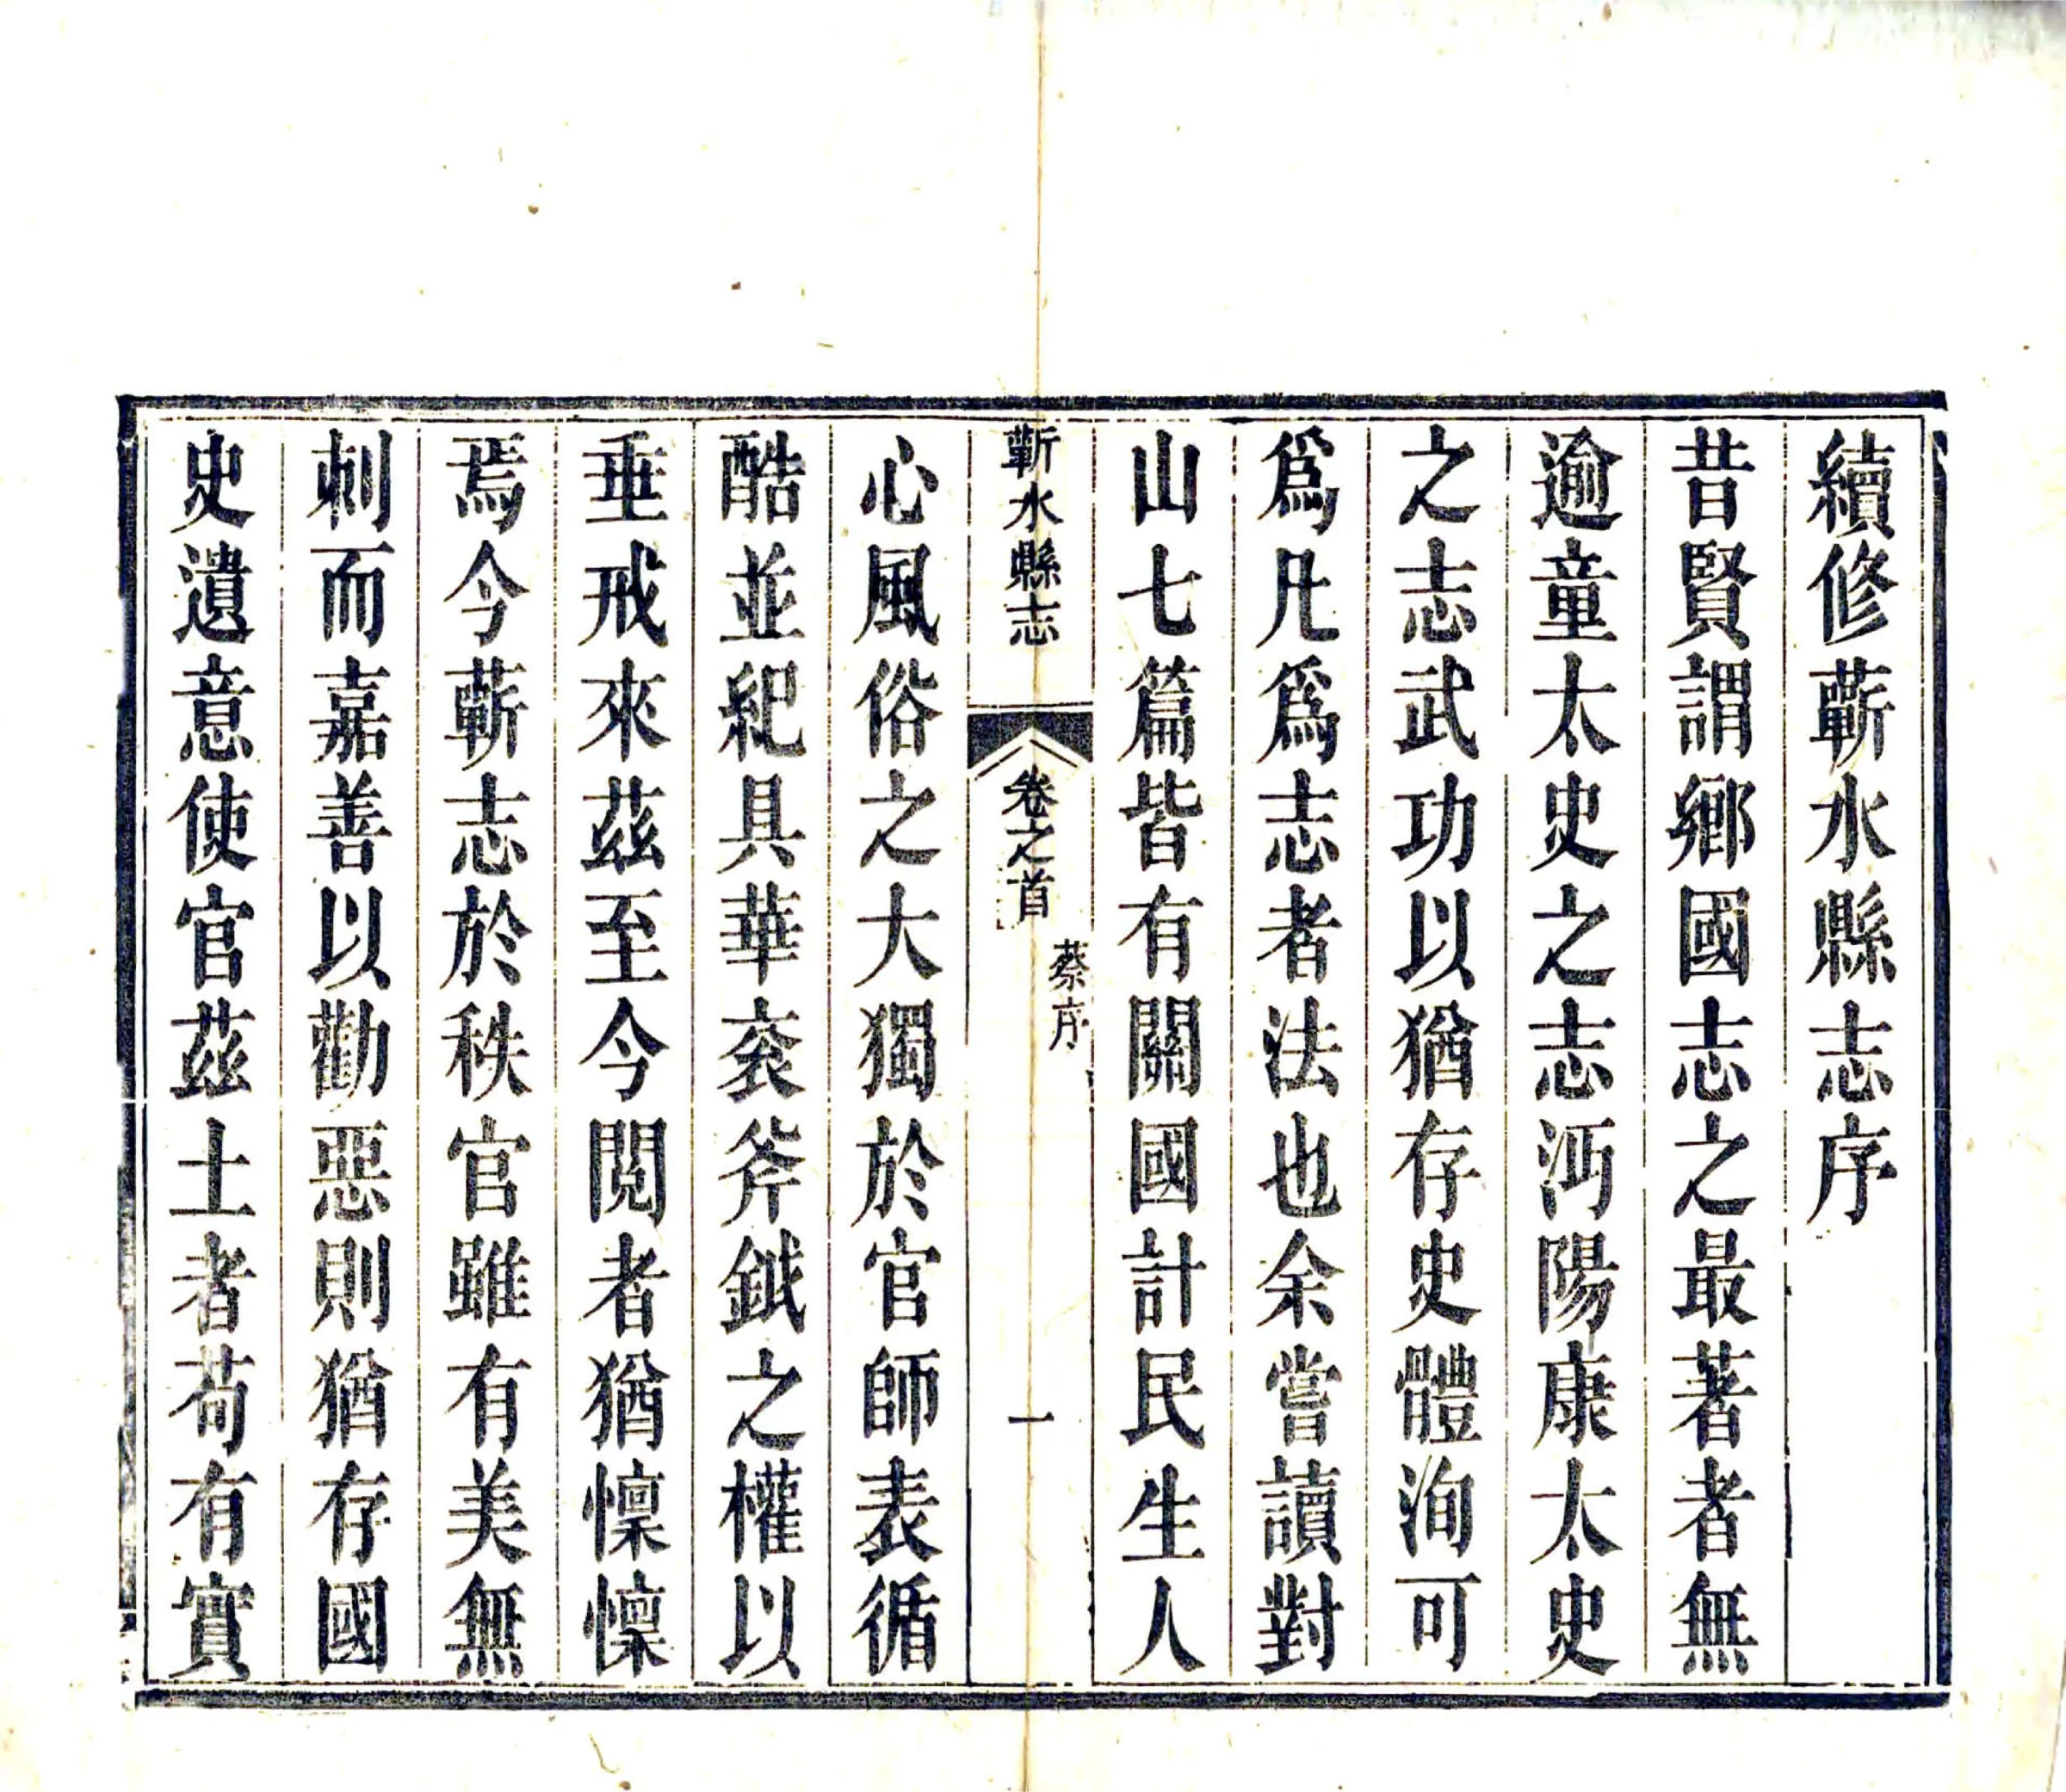 續修蘄水縣志序
昔賢謂鄉國志之最著者無
逾童太史之志沔陽康太史
之志武功以猶存史體洵可
爲凡爲志者法也余嘗讀對
山七篇皆有關國計民生人
蘄水縣志
卷之首
蔡序
一
心風俗之大獨於官師表循
酷並紀具華衮斧鉞之權以
垂戒來茲至今閱者猶懍懍
焉今蘄志於秩官雖有美無
刺而嘉善以勸惡則猶存國
史遺意使官茲土者苟有實